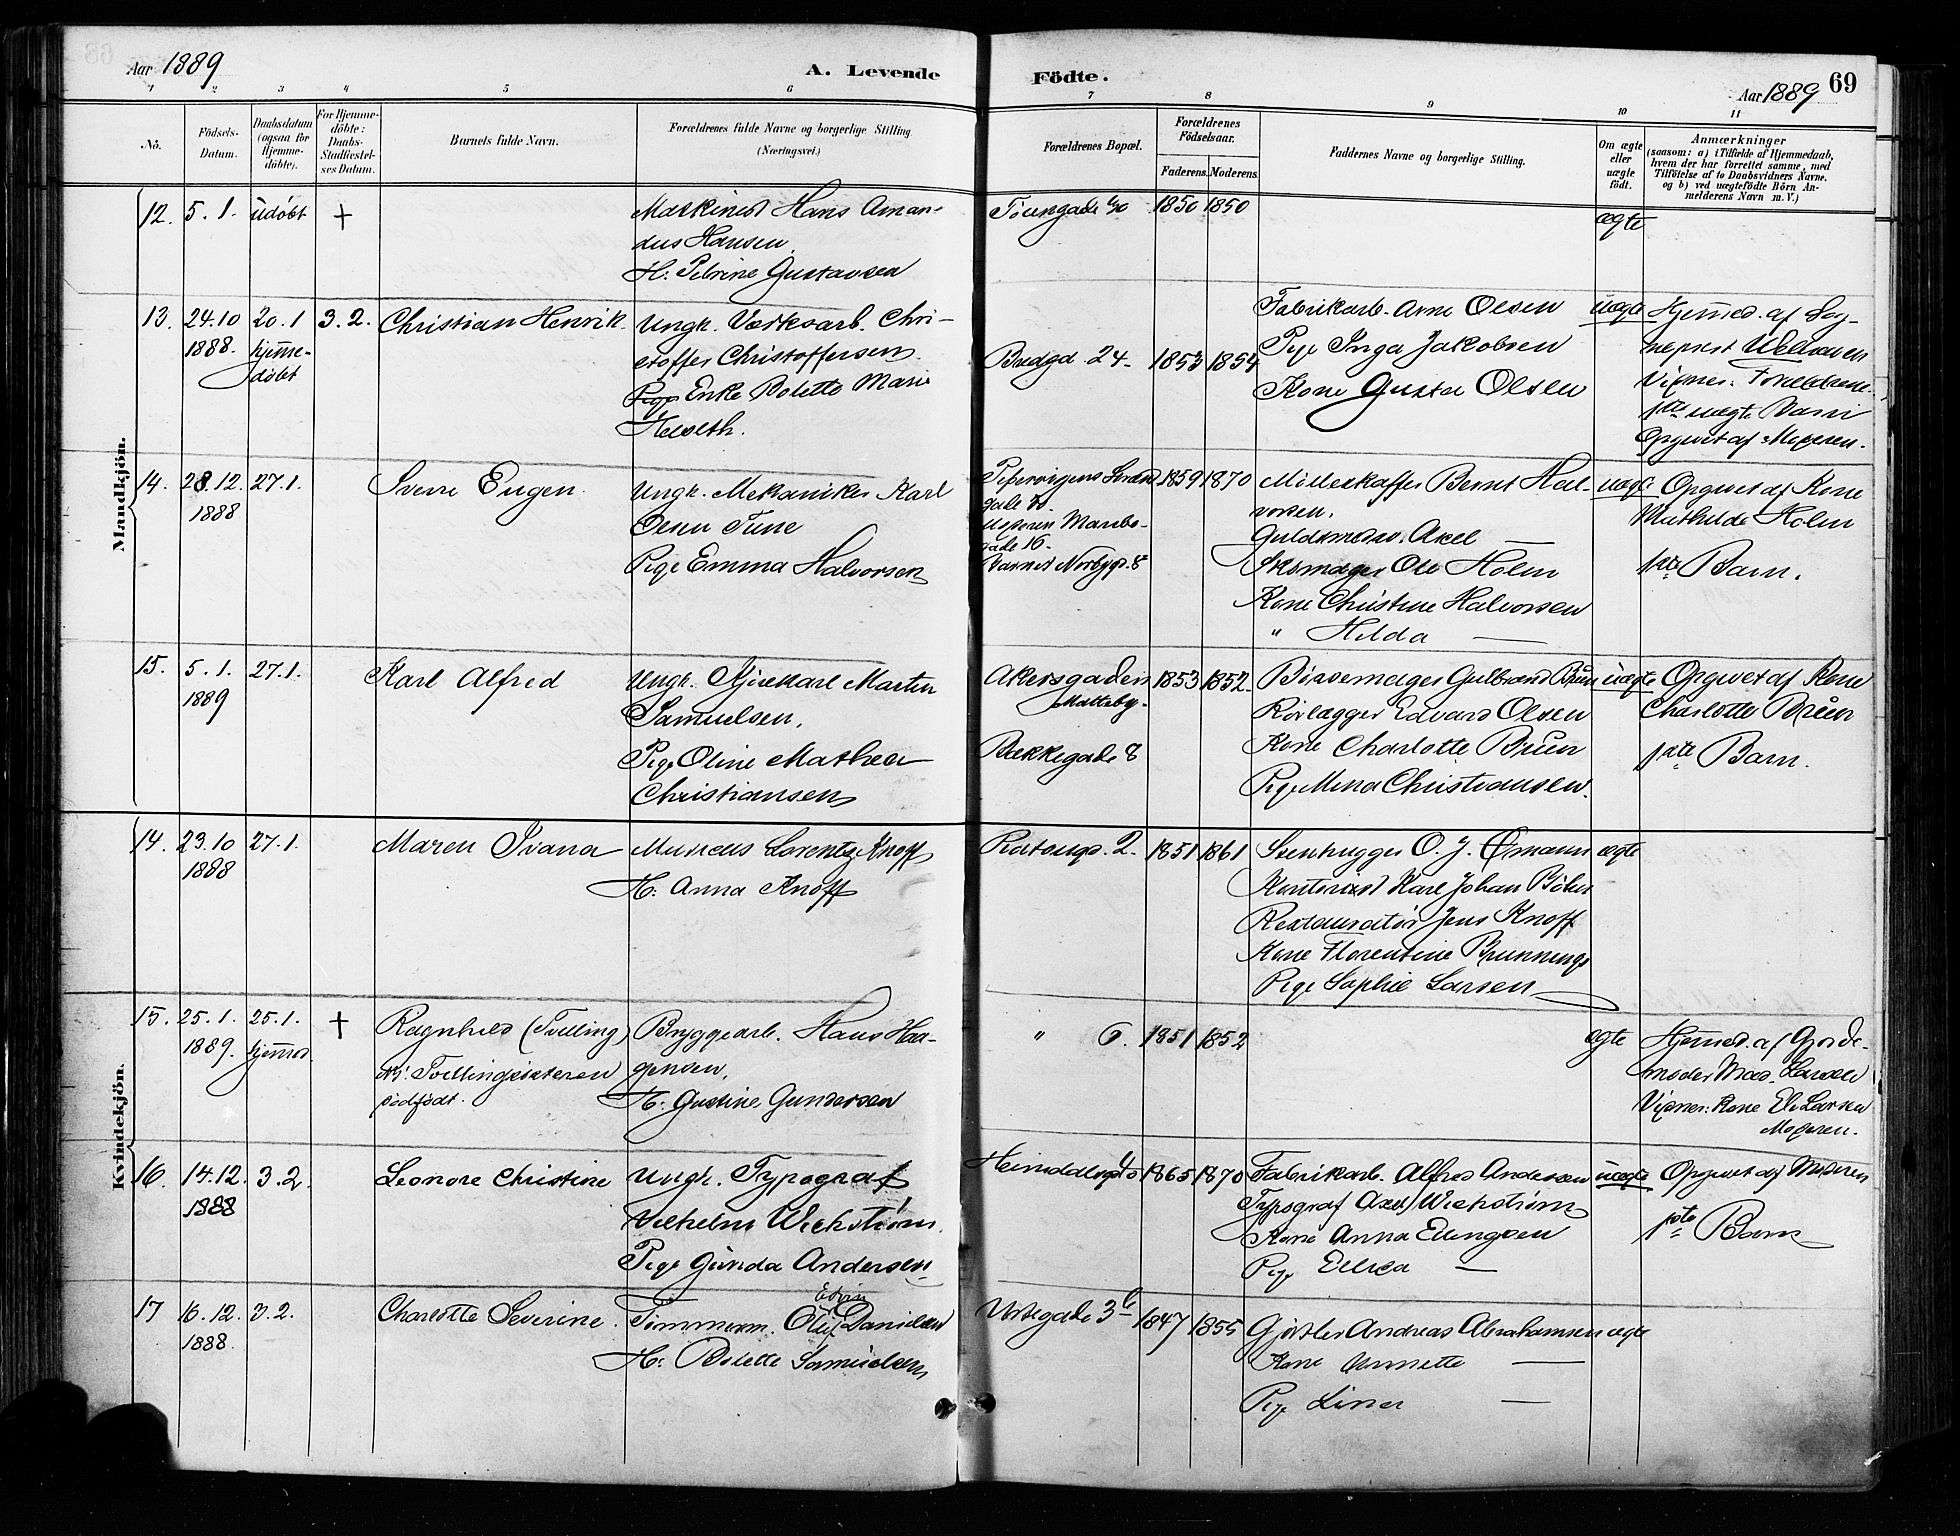 Aar 1889
A. Levende
1 2 3 4 5 6
Nô.
Födsels-Datum.
Daabsdatum (ogsaa for Hjemmedöbte).
For Hjemmedöbte: Daabs-Stadfæstelses Datum.
Barnets fulde Navn.
Forældrenes fulde Navne og borgerlige Stilling
(Næringsvei.)
Mandkjön.
12. 5.1. udøbt † Maskinist Hans Aman-
dus Hansen
H: Petrine Gustavsen
13. 24.10 20.1 3.2. Christian Henrik Ungk. Værksarb. Chri-
1888. hjemme- stoffer Christoffersen
døbt Pige Enke Bolette Marie
14. 28.12. 27.1. Sverre Eugen Ungk. Mekaniker Karl
1888 Olsen Tune
Pige Emma Halvorsen
15. 5.1. 27.1. Karl Alfred Ungk. Martin
1889 Samuelsen,
Pige Oline Mathea
Christiansen
Kvindekjön.
14. 23.10 27.1. Maren Ivana Musicus Lorentz Knoff
1888 H: Anna Knoff
15. 25.1. 25.1. † Ragnhild (Tvilling) Bryggearb. Hans Haa-
1889. hjemmed. N: Tvillingsösteren gensen,
dødfödt. H: Gustine Gundersen
16. 14.12. 3.2. Leonore Christine Ungk. Typograf
1888 Vilhelm Wickstrøm
Pige Gunda Andersen
17 16.12. 3.2. Charlotte Severine. Tømmerm. Oluf Edvin Danielsen
1888. H: Bolette Samuelsen
Födte.
Aar 1889
69
7 8 9 10 11
Forældrenes Bopæl.
Forældrenes Födselsaar.
Faderens. Moderens.
Faddernes Navne og borgerlige Stilling.
Om ægte eller uægte födt.
Anmærkninger
(saasom: a) i Tilfælde af Hjemmedaab,
hvem der har forrettet samme, med
Tilföielse af to Daabsvidners Navne,
og b) ved uægtefödte Börn An-
melderens Navn m.V.)
1850 1850 ægte
Fabrikarb. Arne Olsen uægte Hjemmed. af Sog-
Bredgd 24. 1853 1854 Pige Inga Jakobsen nepræst
Kone Gusta Olsen Vidner: Forældrene
1ste uægte Barn
Opgivet af Moderen.
Pipervigens Strand 1859 1870 Bernt Hal- uægte Opgivet af Kone
gade
vorsen. Mathilde Holm
Moderen Maribo-
gade 16. Guldsmedsv. Axel —
Barnet Norbygd. 8 Skomager Ole Holm 1ste Barn.
Kone Christine Halvorsen
" Hilda —
Akersgaden 1853 1852. Börsemager Gulbrand Bruun uægte Opgivet af Kone
Rørlægger Edvard Olsen Charlotte Bruun
Bakkegade 8 Kone Charlotte Bruun 1ste Barn.
Pige Mina Christiansen.
2. 1851 1861 Stenhugger O. J. Ømann ægte
Kontorist Karl Johan
Restauratør Jens Knoff
Kone Florentine Brunnings
Pige Sophie Larsen
" 6. 1851 1852 ægte Hjemmed. af Gjorde-
moder Mad. Larsen
Vidner: Kone Larsen
Moderen.
1865 1870 Fabrikarb. Alfred Andersen uægte Opgivet af Moderen
Typograf Axel Wickstrøm 1ste Barn
Kone Anna Ellingsen
Pige —
Urtegade 3 b 1847 1855 Gjørtler Andreas Abrahamsen ægte
Kone Annette —
Pige Lina —